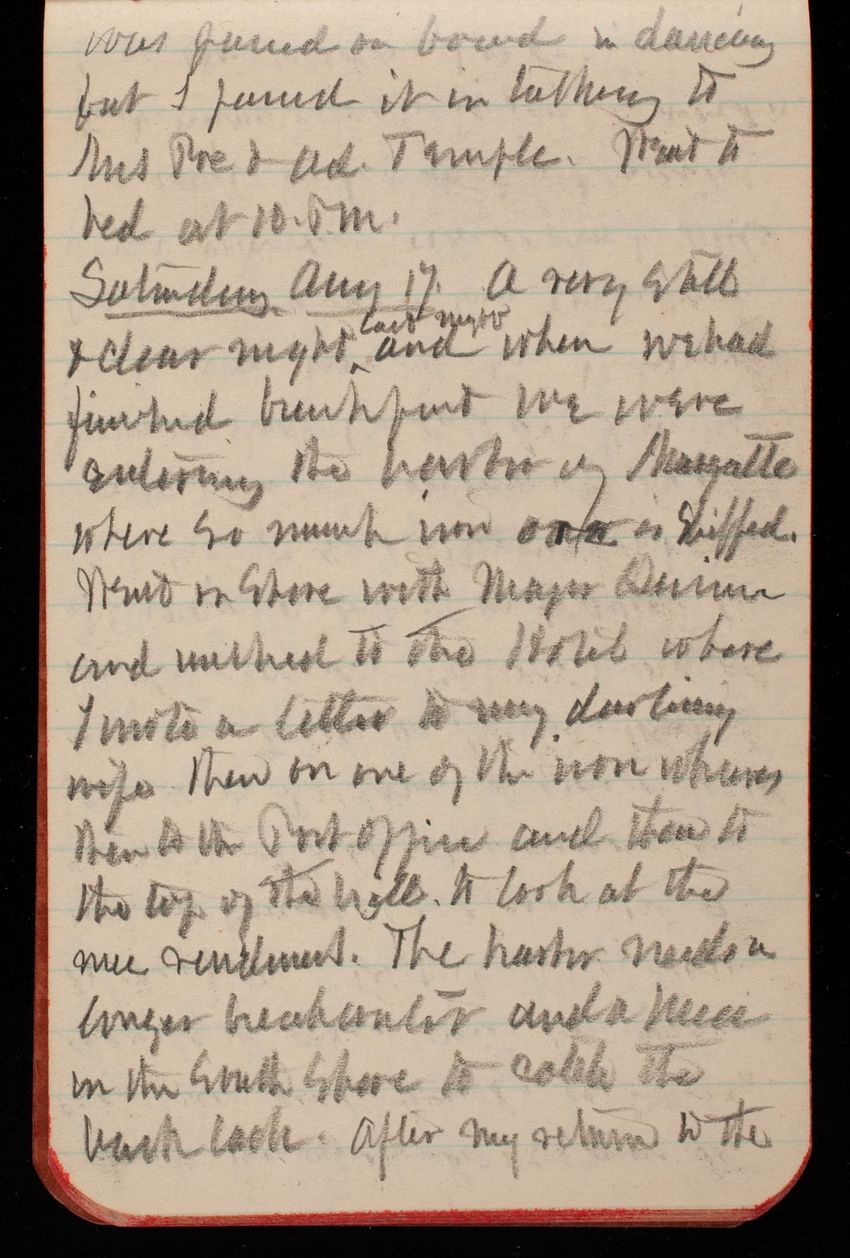 was found on board in dancing
but I found it in talking to
Mrs Poe & Ad. Temple. Went to
bed at 10. P.M.
Saturday Aug 17. A very still
& clear night last night and when we had
finished breakfast we were
entering the harbor of Marquette
where so much iron ore is shipped.
Went on shore with Major Quinn
and walked to the Hotel where
I wrote a letter to my darling
wife then on one of the iron wharves
then to the Post office and then to
the top of the hill. to look at the
nice residences. The harbor needs a
longer breakwater and a piece
on the South Shore to catch the
back lash. After my return to the